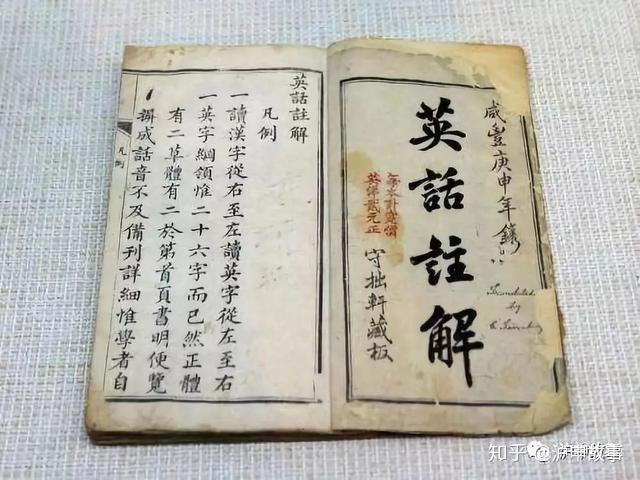 咸豐庚申年鐫
英話註解
守拙軒藏板
每本計實價
英洋貳元正
Translated
by
英話註解
凡例
一讀漢字從右至左讀英字從左至右
一英字綱領惟二十六字而已然正體
有二草體有二於第首頁書明便覽
成話音不及備刊詳細惟學者自
凡例
知乎